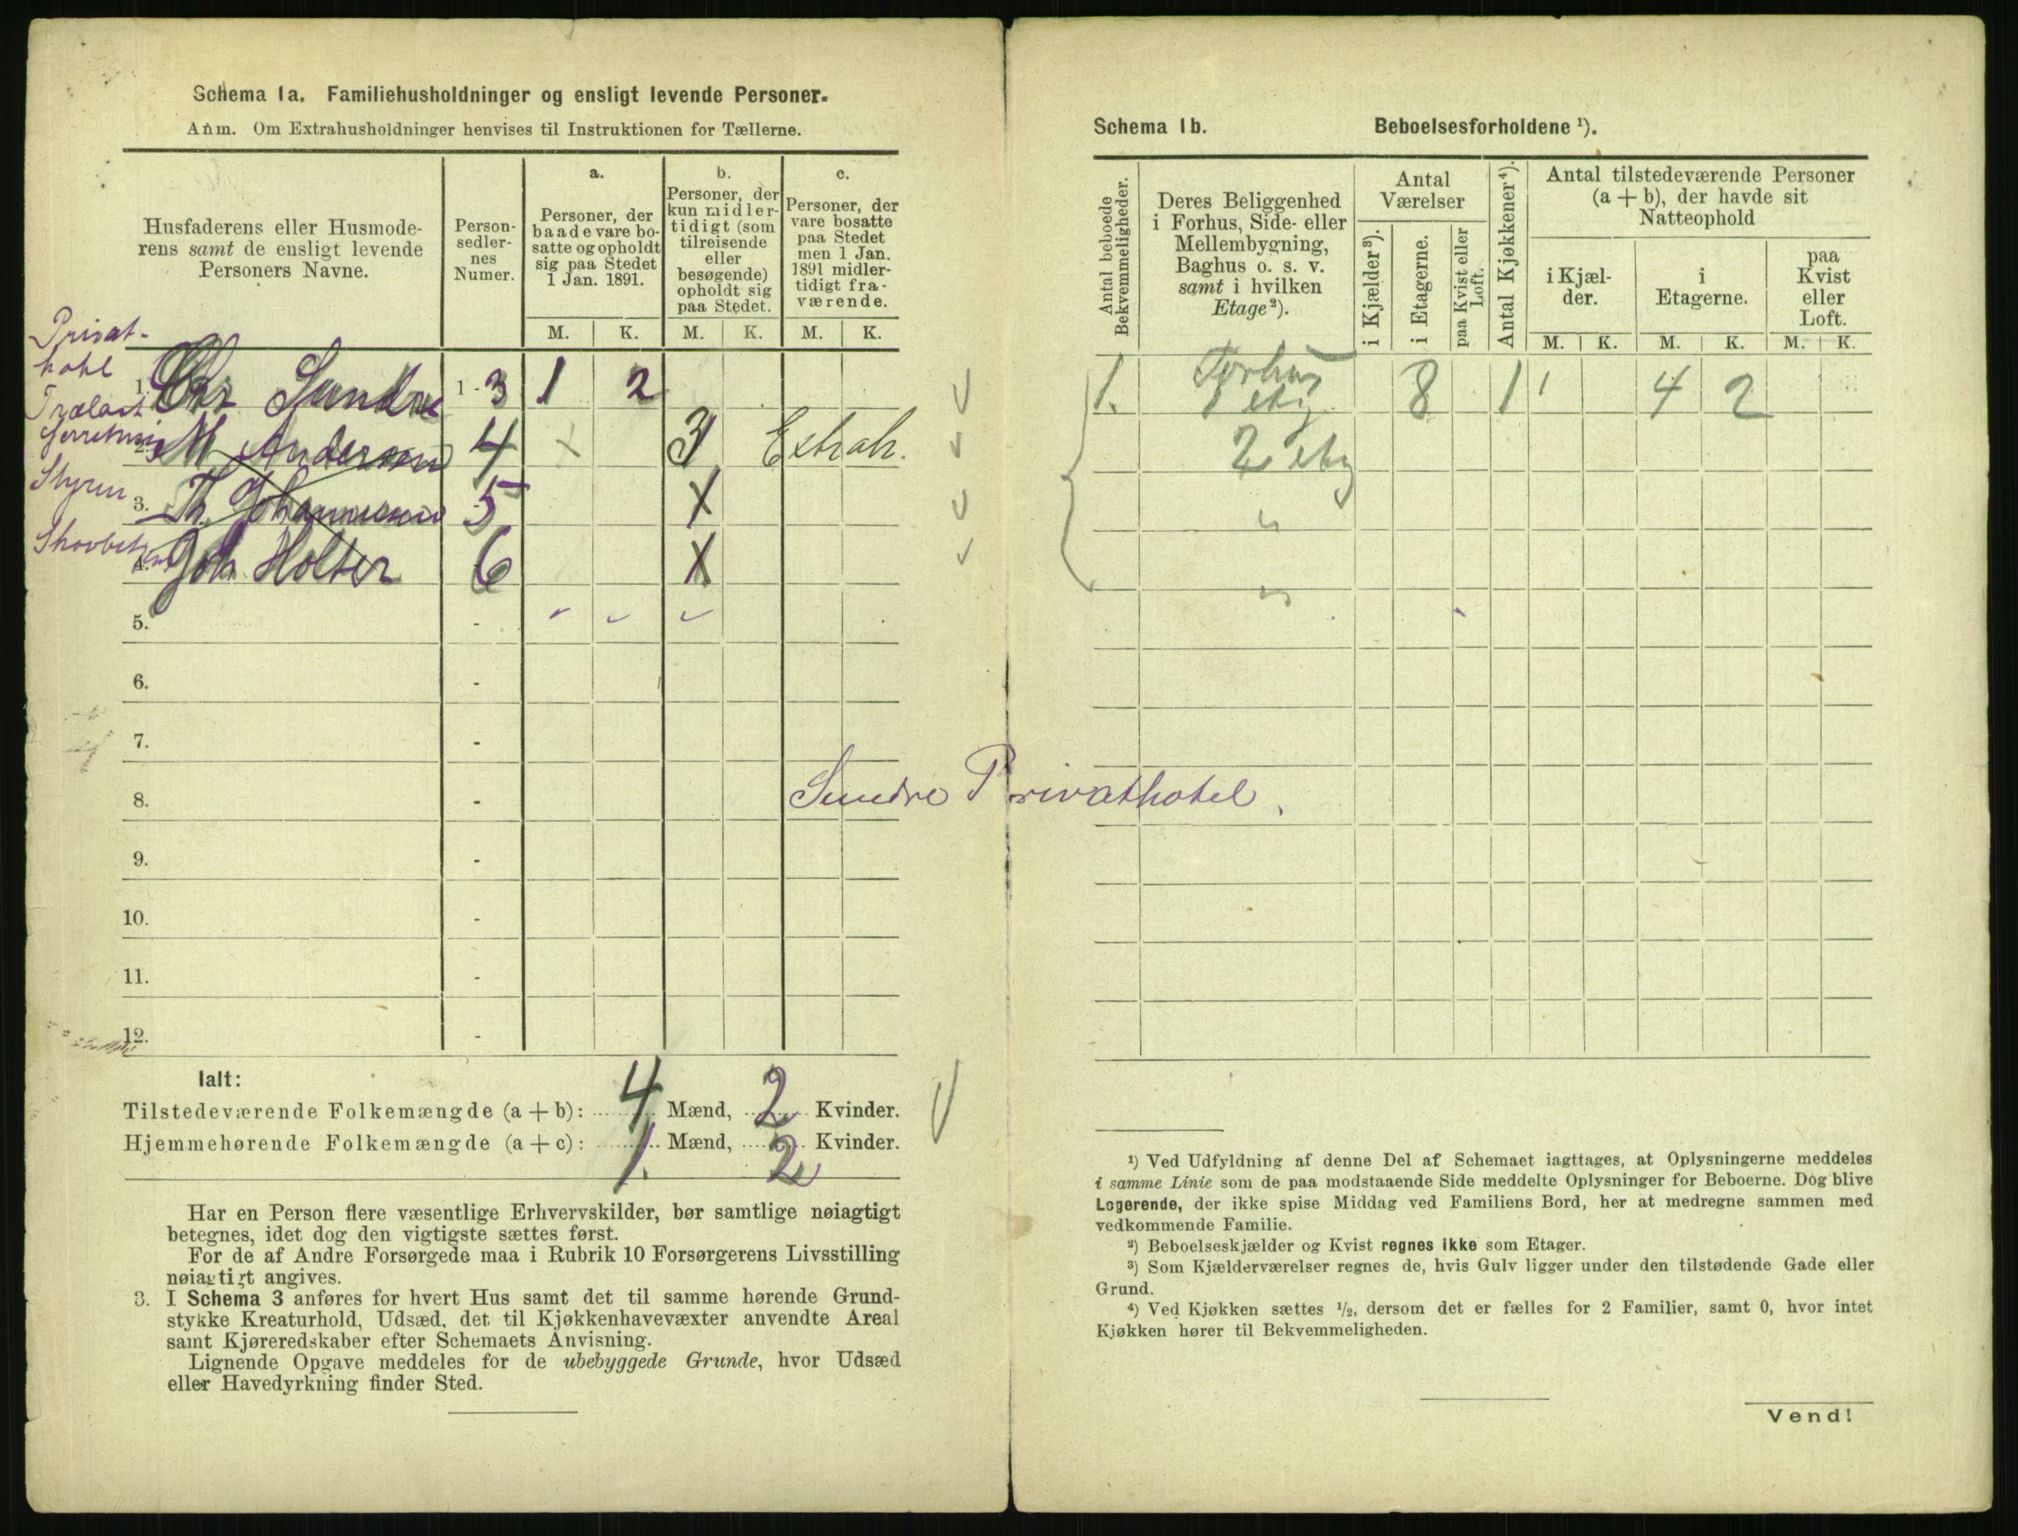 Schema 1a. Familiehusholdninger og ensligt levende Personer.
Anm. Om Extrahusholdninger henvises til Instruktionen for Tællerne.
Husfaderens eller Husmoderens samt de ensligt levende Personers Navne.
Person-sedlernes Numer.
a.
Personer, der baade vare bosatte og opholdt sig paa Stedet 1 Jan. 1891.
b.
Personer, der kun midlertidigt (som tilreisende eller besøgende) opholdt sig paa Stedet.
c.
Personer, der vare bosatte paa Stedet men 1 Jan. 1891 midlertidigt fraværende.
M. K. M. K. M. K.
Privat-
hotel
1. Chr Sundre 1 - 3 1 2
2. M Anderson 4 3 Extrah.
Styrm
3. Th. Johannesen 5 X
4. Joh. Holter 6 X
5. -
6. -
7. -
8. -
Sundre Privathotel.
9. -
10. -
11. -
12. -
Ialt:
Tilstedeværende Folkemængde (a + b): 4 Mænd, 2 Kvinder.
Hjemmehørende Folkemængde (a + c): 1. Mænd, 2 Kvinder.
Har en Person flere væsentlige Erhvervskilder, bør samtlige nøiagtigt
betegnes, idet dog den vigtigste sættes først.
For de af Andre Forsørgede maa i Rubrik 10 Forsørgerens Livsstilling
nøiagtigt angives.
3. I Schema 3 anføres for hvert Hus samt det til samme hørende Grund-
stykke Kreaturhold, Udsæd, det til Kjøkkenhavevæxter anvendte Areal
samt Kjøreredskaber efter Schemaets Anvisning.
Lignende Opgave meddeles for de ubebyggede Grunde, hvor Udsæd
eller Havedyrkning finder Sted.
Schema 1b. Beboelsesforholdene ¹).
Antal beboede Bekvemmeligheder.
Deres Beliggenhed i Forhus, Side- eller Mellembygning, Baghus o. s. v. samt i hvilken Etage²).
Antal Værelser
i Kjælder³).
i Etagerne.
paa Kvist eller Loft.
Antal Kjøkkener⁴).
Antal tilstedeværende Personer (a + b), der havde sit Natteophold
i Kjælder.
i Etagerne.
paa Kvist eller Loft.
M. K. M. K. M. K.
1. Forhus 8 1 4 2
1 etg.
2 etg
"
"
¹) Ved Udfyldning af denne Del af Schemaet iagttages, at Oplysningerne meddeles
i samme Linie som de paa modstaaende Side meddelte Oplysninger for Beboerne. Dog blive
Logerende, der ikke spise Middag ved Familiens Bord, her at medregne sammen med
vedkommende Familie.
²) Beboelseskjælder og Kvist regnes ikke som Etager.
³) Som Kjælderværelser regnes de, hvis Gulv ligger under den tilstødende Gade eller
Grund.
⁴) Ved Kjøkken sættes ½, dersom det er fælles for 2 Familier, samt 0, hvor intet
Kjøkken hører til Bekvemmeligheden.
Vend!